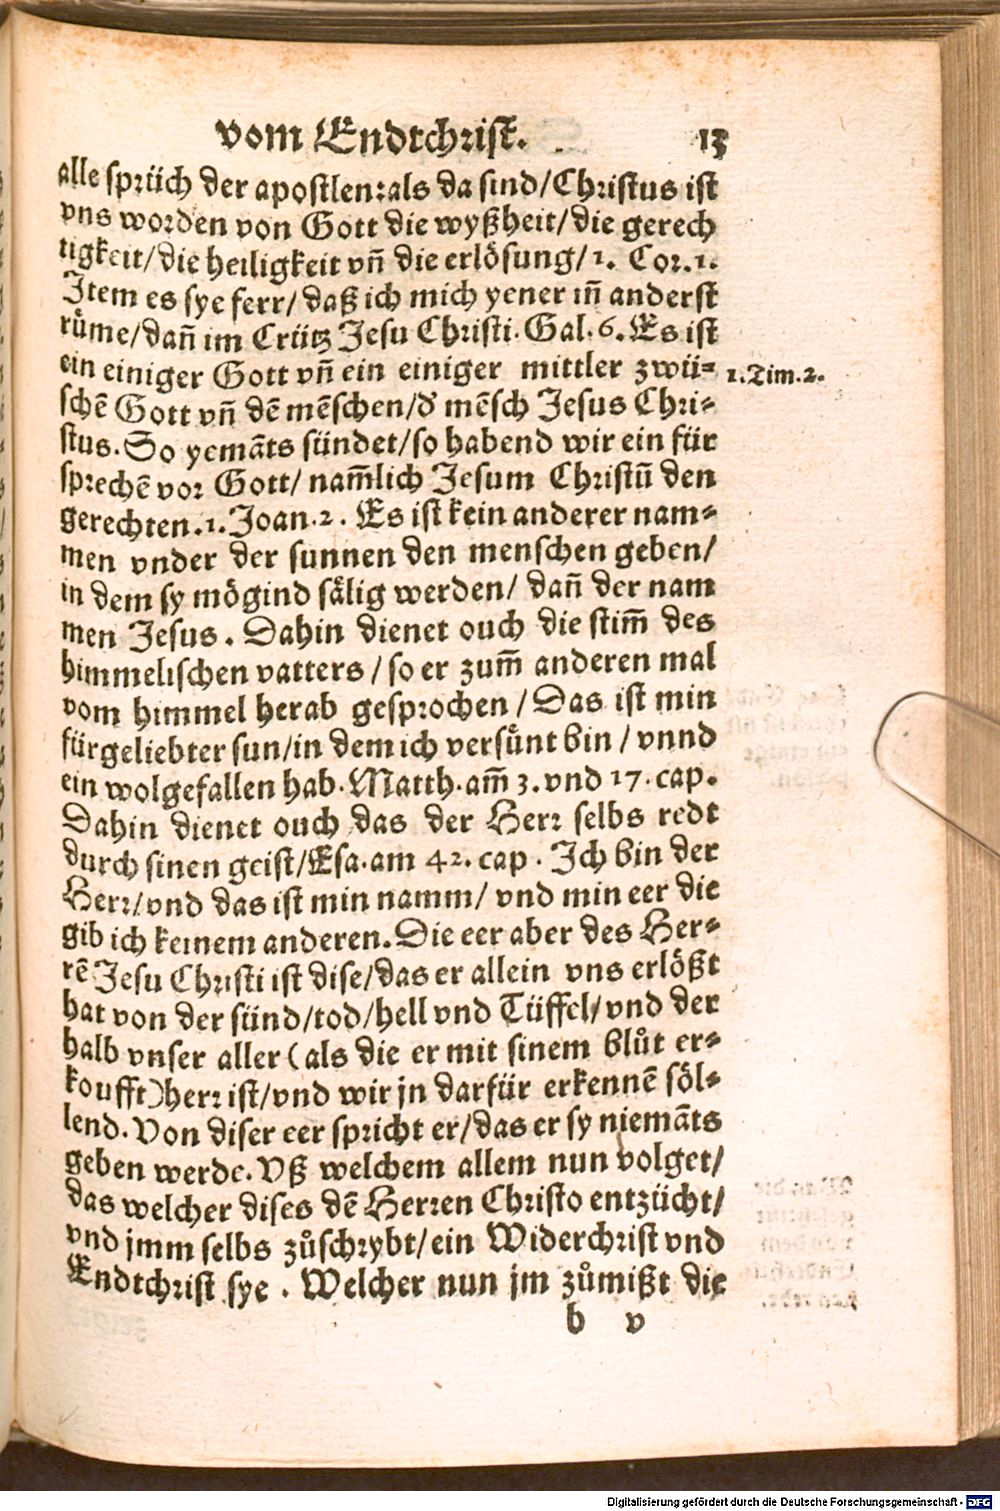 vom Endtchrist. 13
alle sprüch der apostlen: als da sind/Christus ist
vns worden von Gott die wyßheit/die gerech
tigkeit/die heiligkeit vñ die erlösung/1. Cor.1.
Item es sye ferr/daß ich mich yener iñ anderst
rüme/dañ im Crütz Jesu Christi. Gal.6. Es ist
ein einiger Gott vñ ein einiger mittler zwü-
schẽ Gott vñ dẽ mẽschen/d' mẽsch Jesus Chri-
stus. So yemãts sündet/so habend wir ein für
sprechẽ vor Gott/nam̃lich Jesum Christũ den
gerechten.1.Joan.2. Es ist kein anderer nam-
men vnder der sunnen den menschen geben/
in dem sy mögind sälig werden/dañ der nam
men Jesus. Dahin dienet ouch die stim̃ des
himmelischen vatters/so er zum̃ anderen mal
vom himmel herab gesprochen/Das ist min
fürgeliebter sun/in dem ich versůnt bin/vnnd
ein wolgefallen hab. Matth.am̃ 3. vnd 17. cap.
Dahin dienet ouch das der Herr selbs redt
durch sinen geist/Esa.am 42. cap. Ich bin der
Herr/vnd das ist min namm/vnd min eer die
gib ich keinem anderen. Die eer aber des Her-
rẽ Jesu Christi ist dise/das er allein vns erlößt
hat von der sünd/tod/hell vnd Tüffel/vnd der
halb vnser aller (als die er mit sinem blůt er-
koufft) herr ist/vnd wir jn darfür erkennẽ söl-
lend. Von diser eer spricht er/das er sy niemãts
geben werde. Vß welchem allem nun volget/
das welcher dises dẽ Herren Christo entzücht/
vnd jmm selbs zůschrybt/ein Widerchrist vnd
Endtchrist sye. Welcher nun jm zůmißt die
b v
1.Tim.2.
Digitalisierung gefördert durch die Deutsche Forschungsgemeinschaft - DFG